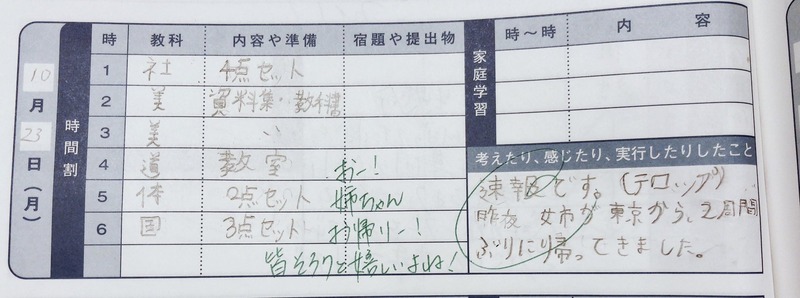 10
月
23
日(月)
時間割
時 教科 内容や準備 宿題や提出物
1 社 4点セット
2 美 資料集・教科書
3 美 〃
4 道 教室
5 体 2点セット
6 国 3点セット
おー!
姉ちゃん
お帰りー!
皆そろうと嬉しいよね!
家庭学習
時〜時 内容
考えたり、感じたり、実行したりしたこと
速報です。(テロップ)
昨夜 姉が東京から、2週間
ぶりに帰ってきました。